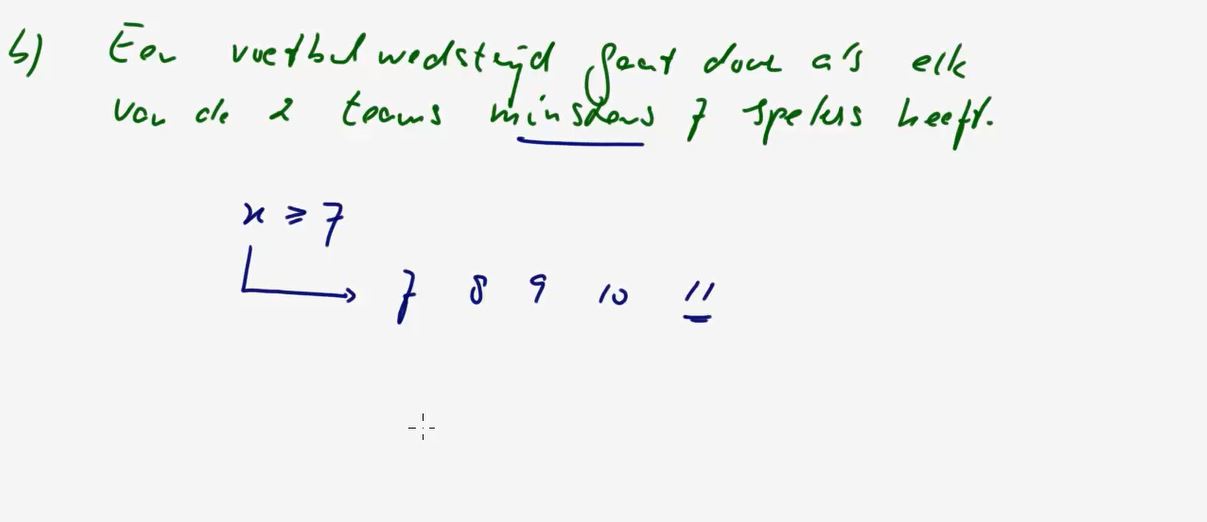 b) Een voetbalwedstrijd gaat door als elk
van de 2 teams minstens 7 spelers heeft.
x ≥ 7
7 8 9 10 11